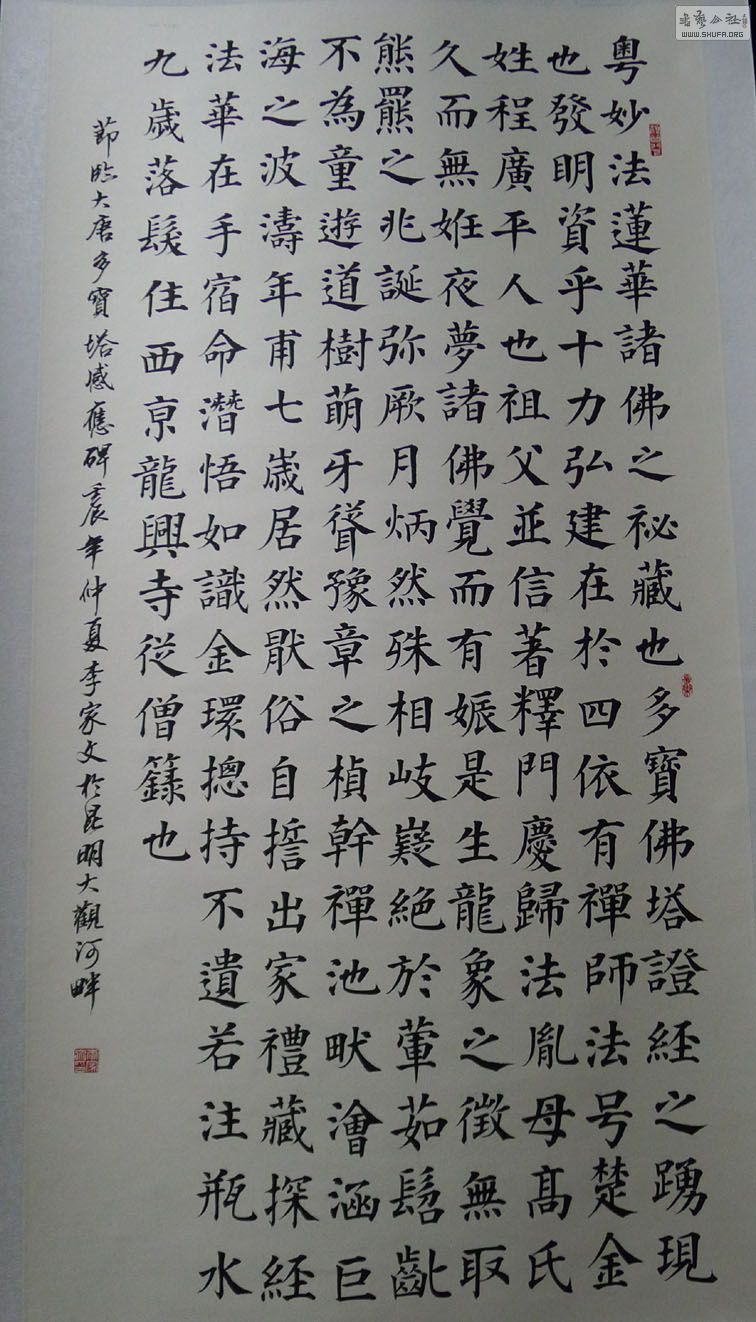 粵妙法蓮華諸佛之祕藏也多寶佛塔證經之踴現
也發明資乎十力弘建在於四依有禪師法号楚金
姓程廣平人也祖父並信著釋門慶歸法胤母髙氏
久而無姙夜夢諸佛覺而有娠是生龍象之徵無取
熊羆之兆誕弥厥月炳然殊相岐嶷絕於葷茹髫齔
不為童遊道樹萌牙聳豫章之楨幹禪池畎澮涵巨
海之波濤年甫七歲居然猒俗自誓出家禮藏探經
法華在手宿命潛悟如識金環摠持不遺若注瓶水
九歲落髮住西亰龍興寺從僧籙也
節臨大唐多寶塔感應碑壬辰年仲夏李家文於昆明大觀河畔
WWW.SHUFA.ORG